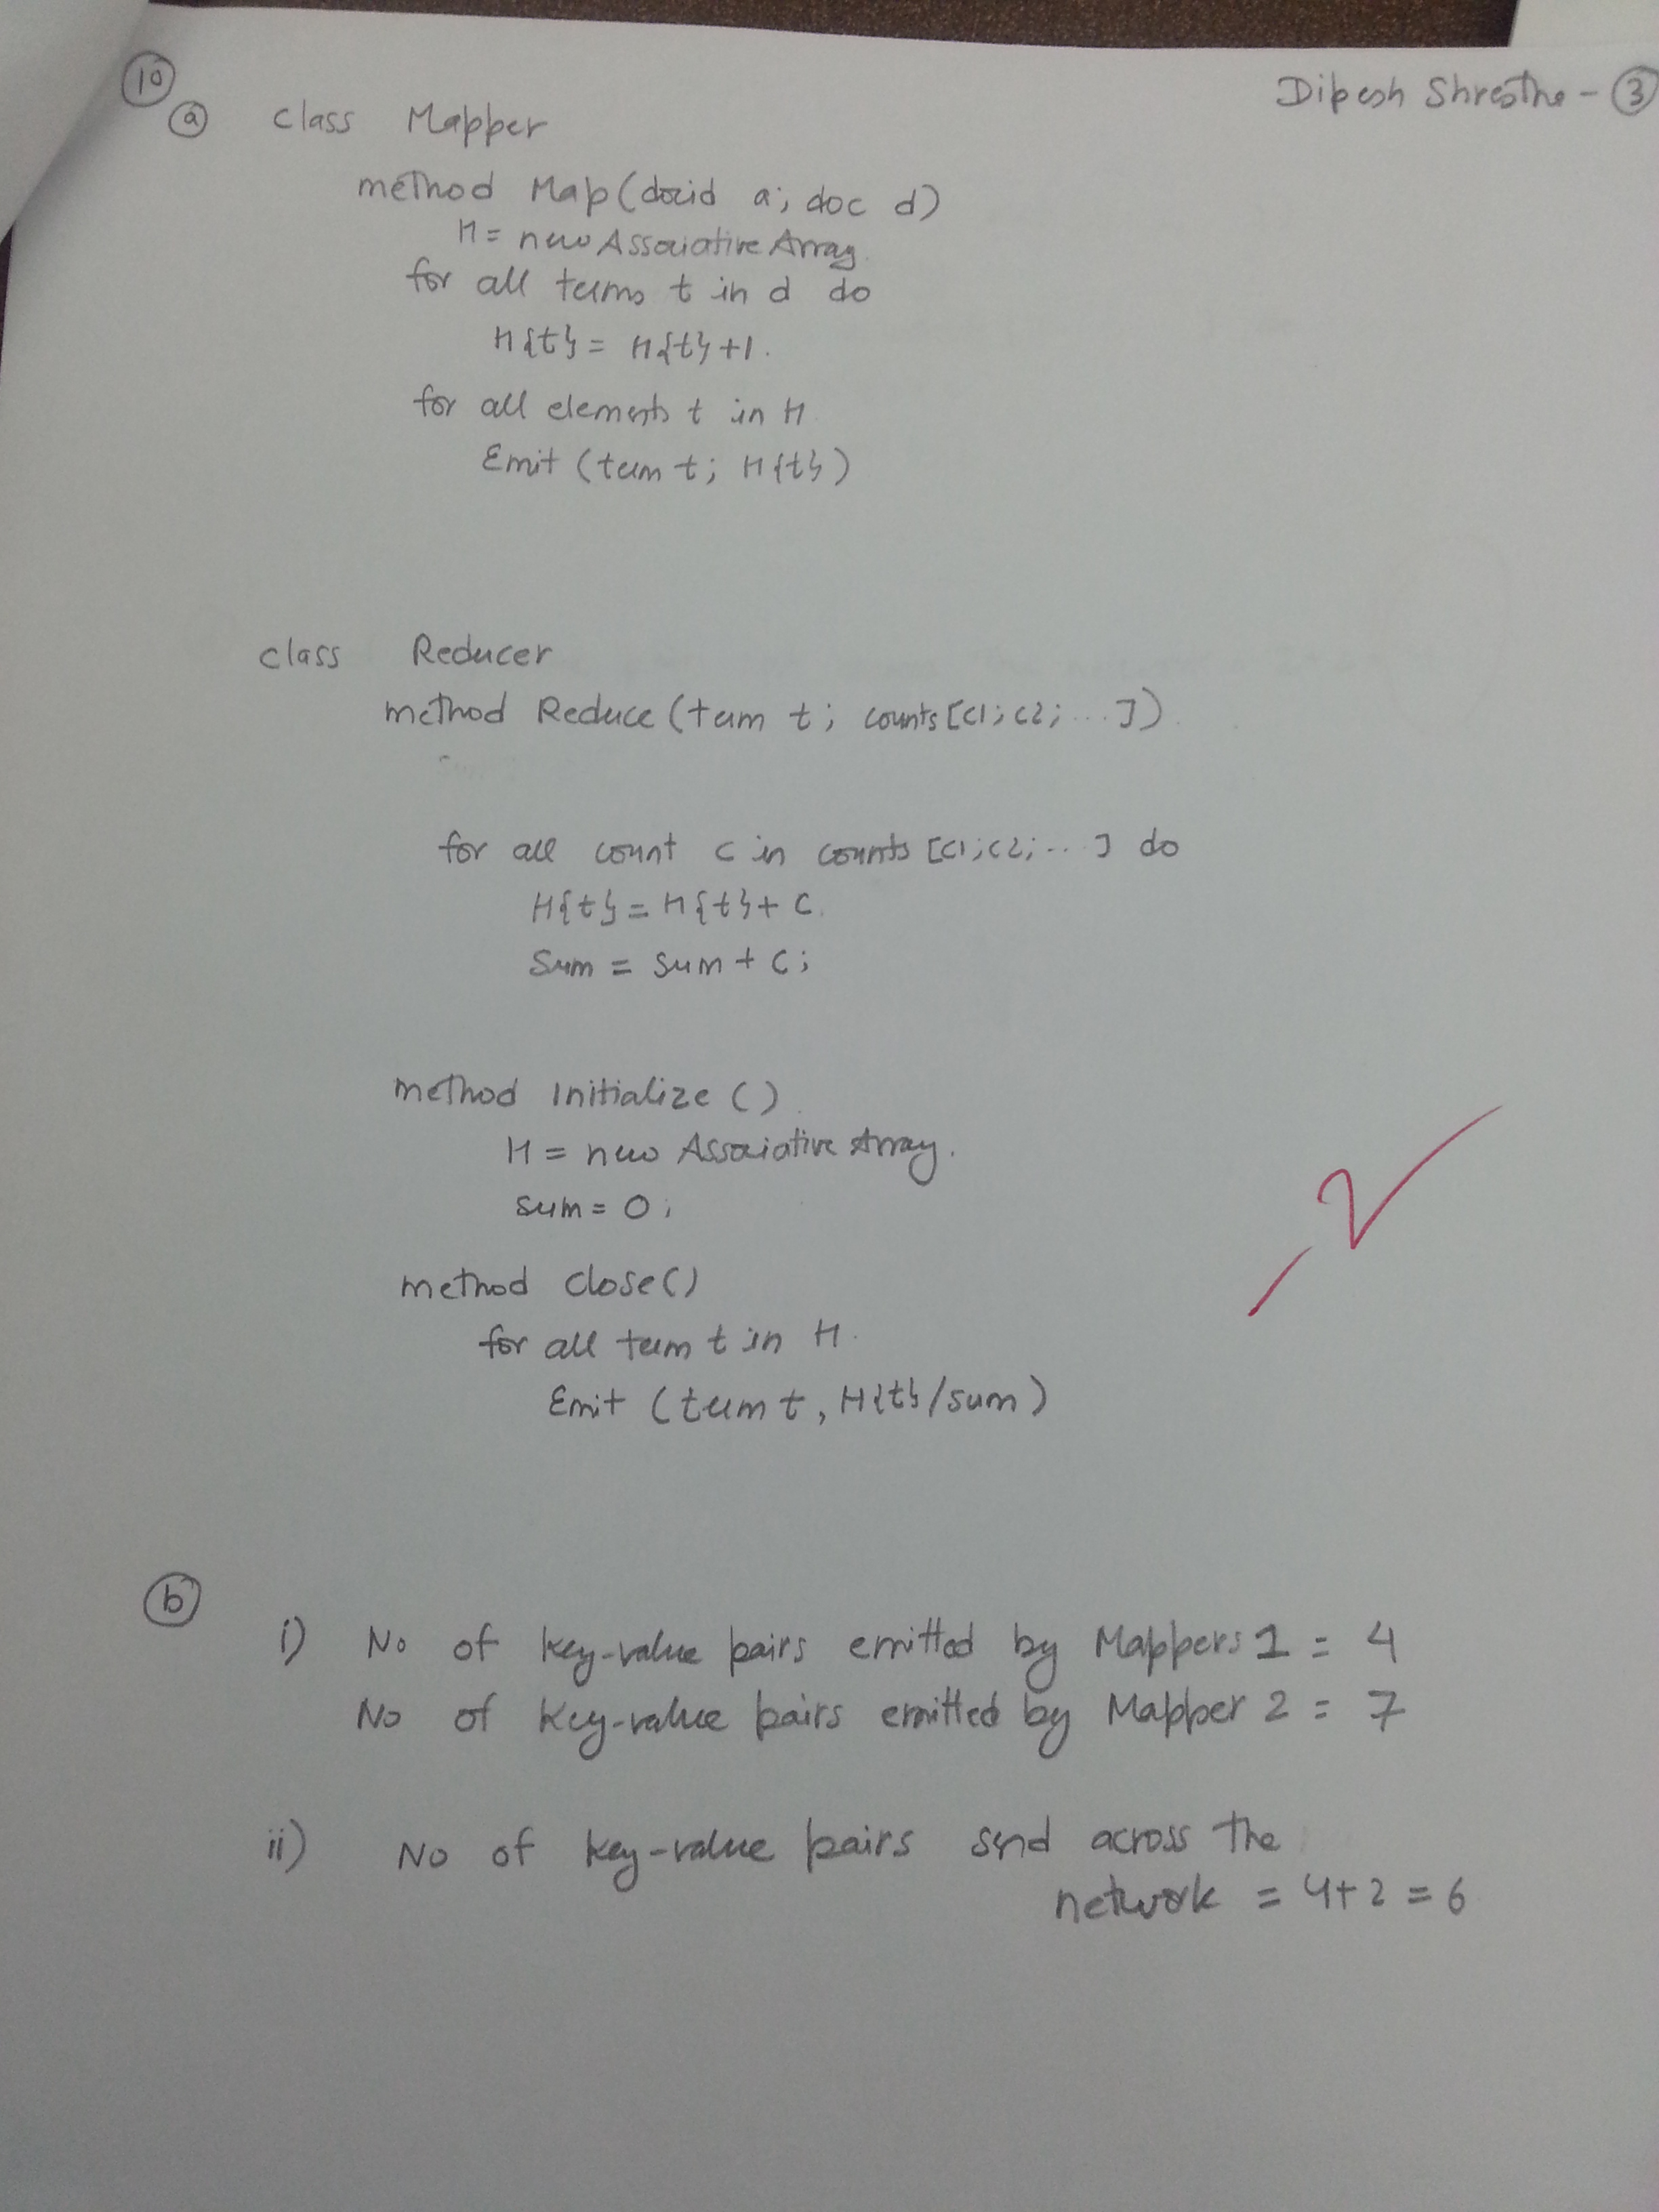 10
Dipesh Shrestha - 3
a class Mapper
method Map(docid a; doc d)
H = new Associative Array
for all terms t in d do
H{t} = H{t} + 1.
for all elements t in H
Emit (term t; H{t})
class Reducer
method Reduce (term t; counts [c1; c2; ... ])
for all count c in counts [c1; c2; ... ] do
H{t} = H{t} + c.
Sum = sum + c;
method Initialize ()
H = new Associative Array.
sum = 0;
method close()
for all term t in H.
Emit (term t, H{t}/sum)
-2
b
i) No of key-value pairs emitted by Mappers 1 = 4
No of key-value pairs emitted by Mapper 2 = 7
ii) No of key-value pairs send across the
network = 4+2 = 6